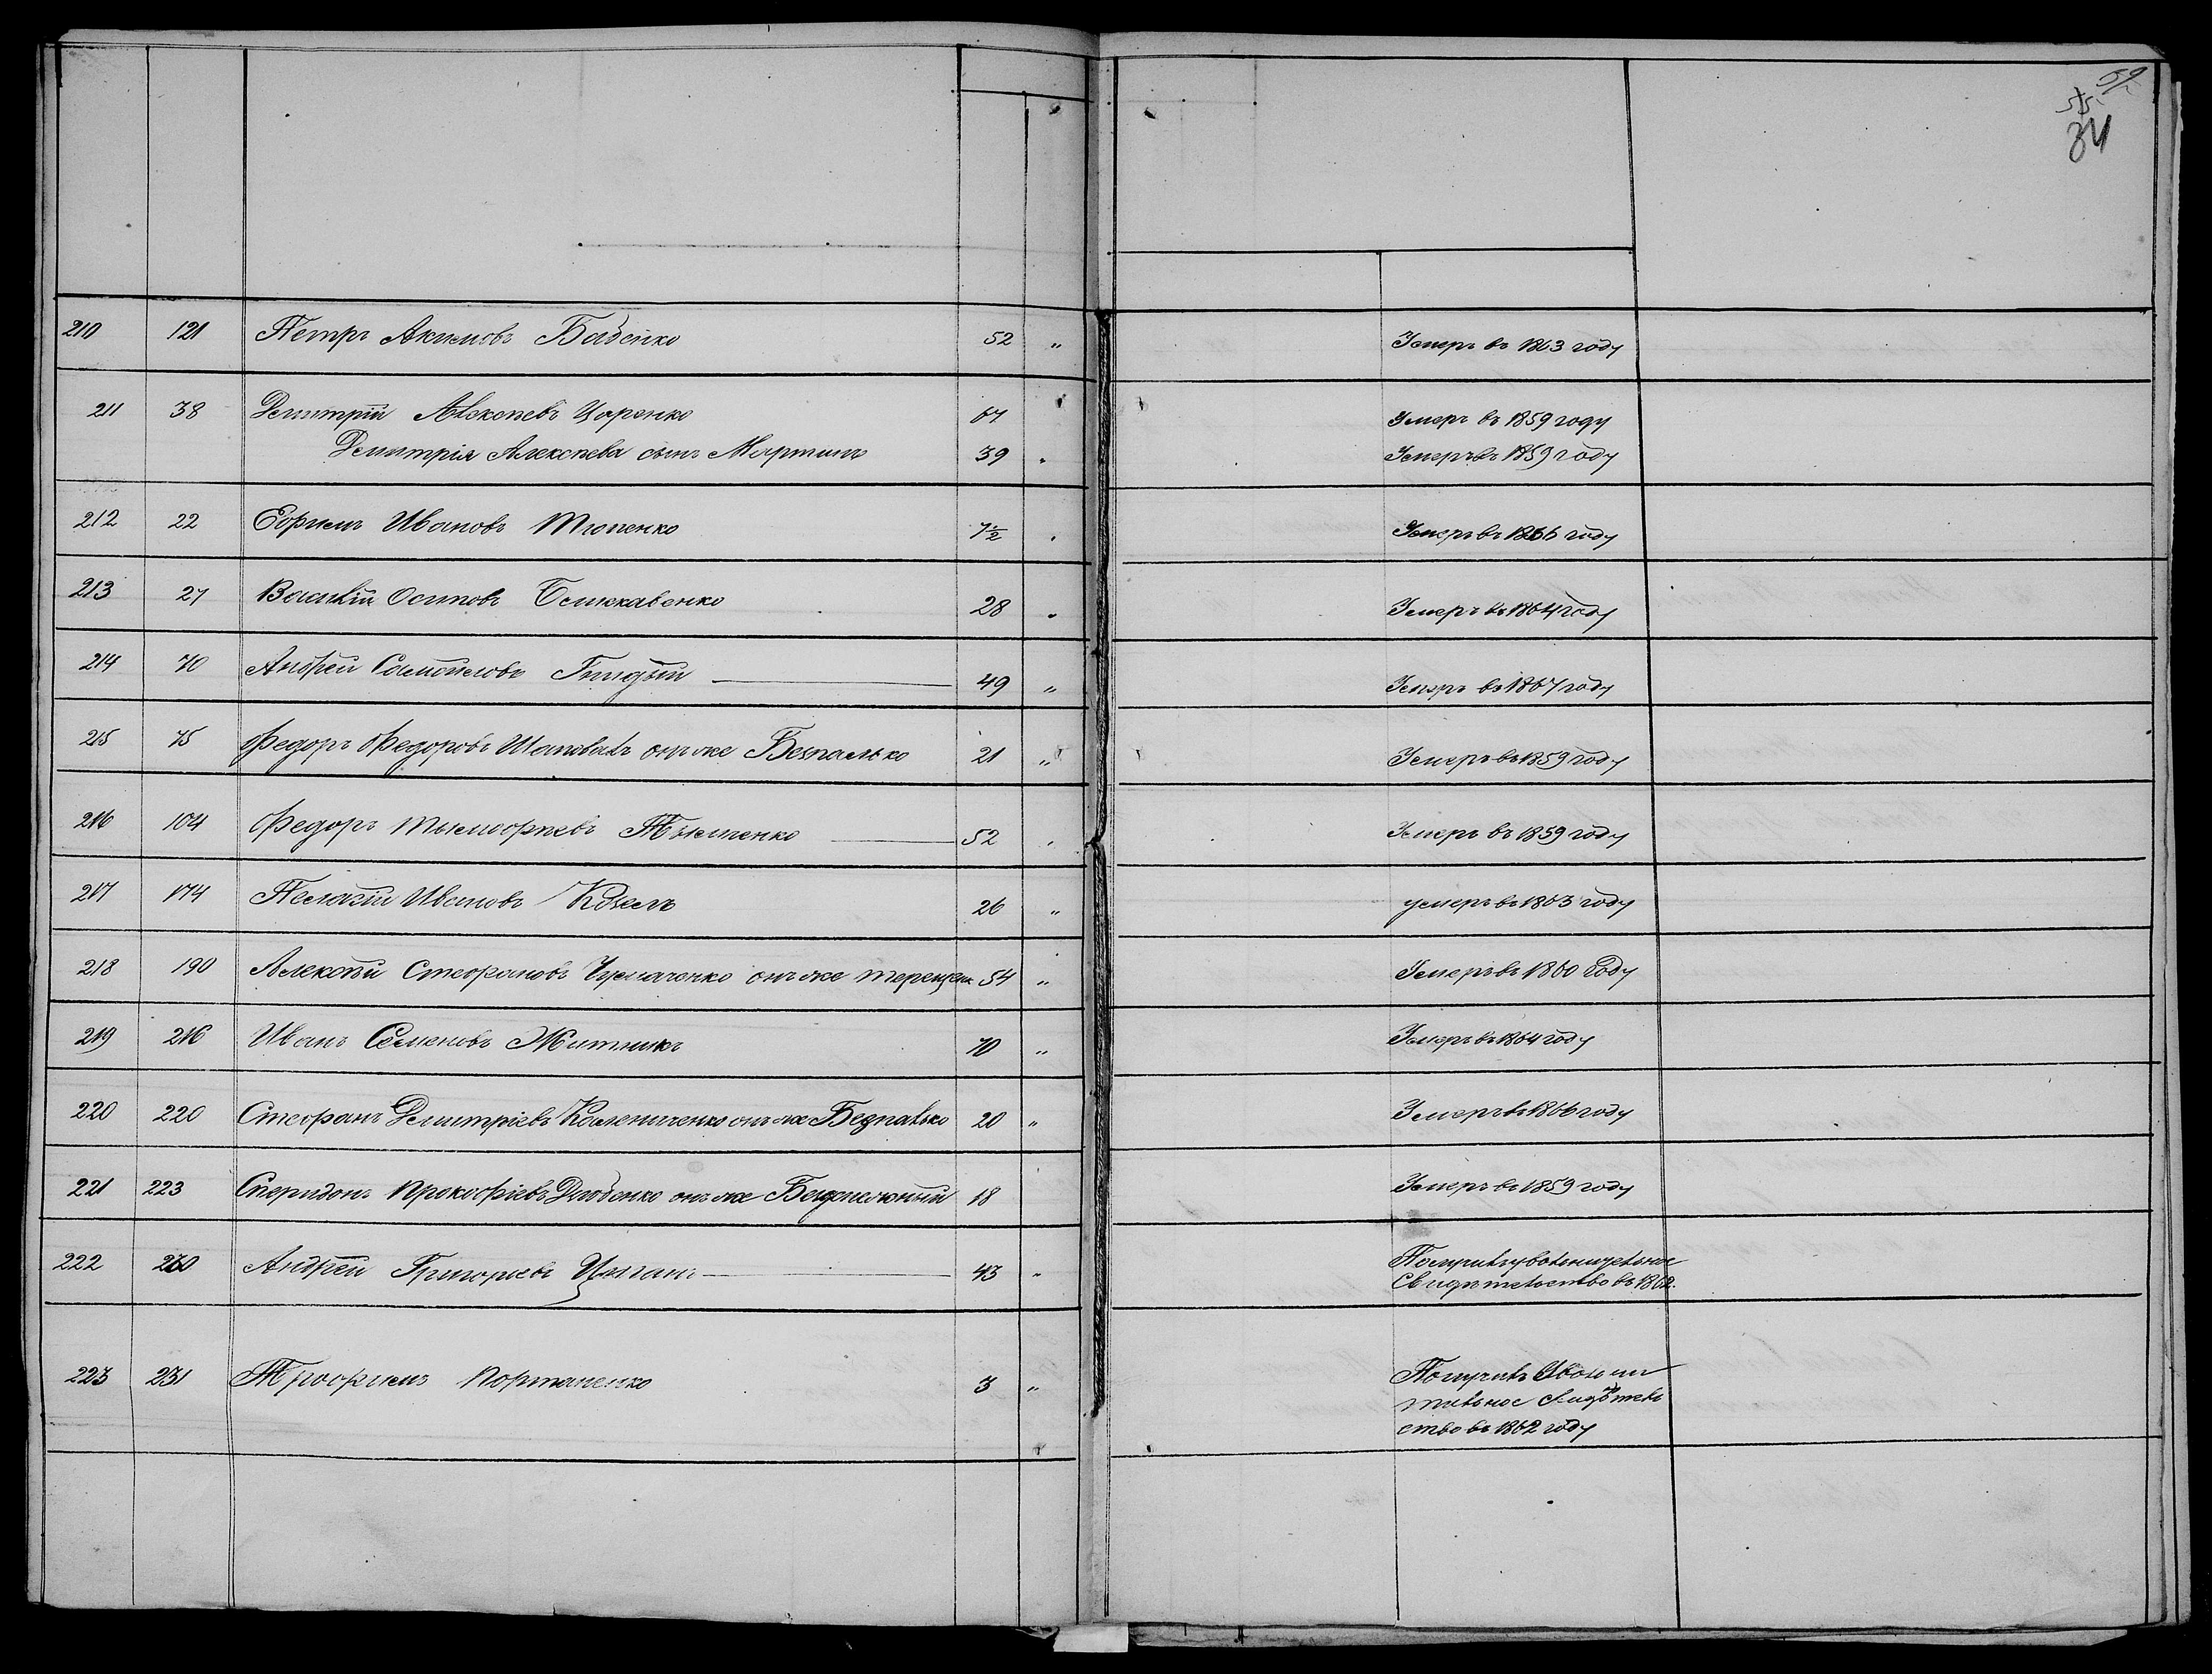 59
55
34
210 121 Петръ Акимовъ Баденко 52 „ Умеръ въ 1863 году
211 38 Дмитрій Алексѣевъ Царенко 67 Умеръ въ 1859 году
Дмитрія Алексѣева сынъ Мартинъ 39 „ Умеръ въ 1859 году
212 22 Ефримъ Ивановъ 7½ Умеръ въ 1866 году
213 27 Василій Осиповъ 28 „ Умеръ въ 1864 году
214 70 Андрей Самойловъ 49 „ Умеръ въ 1867 году
215 75 Федоръ Федоровъ Шаповалъ онъ же Безпалько 21 „ Умеръ въ 1859 году
216 104 Федоръ Тымофѣевъ 52 Умеръ въ 1859 году
217 174 Пелагій Ивановъ Козелъ 26 „ умеръ въ 1863 году
218 190 Алексѣй Стефановъ онъ же Терещенк 54 „ Умеръ въ 1860 году
219 216 Иванъ Семеновъ Житникъ 70 „ Умеръ въ 1864 году
220 220 Стефанъ Дмитріевъ Калениченко онъ же Бедналько 20 „ Умеръ въ 1866 году
221 223 Спиридонъ Прокофіевъ онъ же 18 Умеръ въ 1859 году
222 230 Андрей Григорьевъ Цыганъ 43 „ Получилъ увольнительное
Свидѣтельство въ 1862.
223 231 Трофимъ Портаненко 3 „ Получилъ Уволни
тельное Свидѣтель
ство въ 1862 году